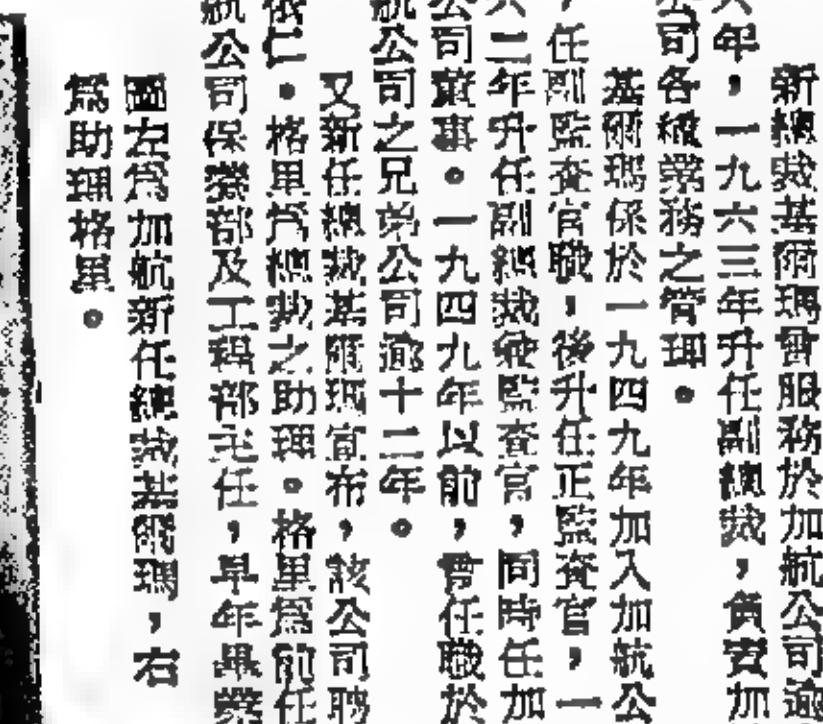 新總裁基爾瑪曾服務於加航公司逾
六年，一九六三年升任副總裁，負責加
公司各種業務之管理。
基爾瑪係於一九四九年加入加航公
，任副監查官職，後升任正監查官，一
六二年升任副總裁兼監查官，同時任加
公司董事。一九四九年以前，曾任職於
航公司之兄弟公司逾十二年。
又新任總裁基爾瑪宣布，該公司聘
俄仁。格里為總裁之助理。格里為前任
航公司保養部及工程部主任，早年畢業
圖左為加航新任總裁基爾瑪，右
為助理格里。